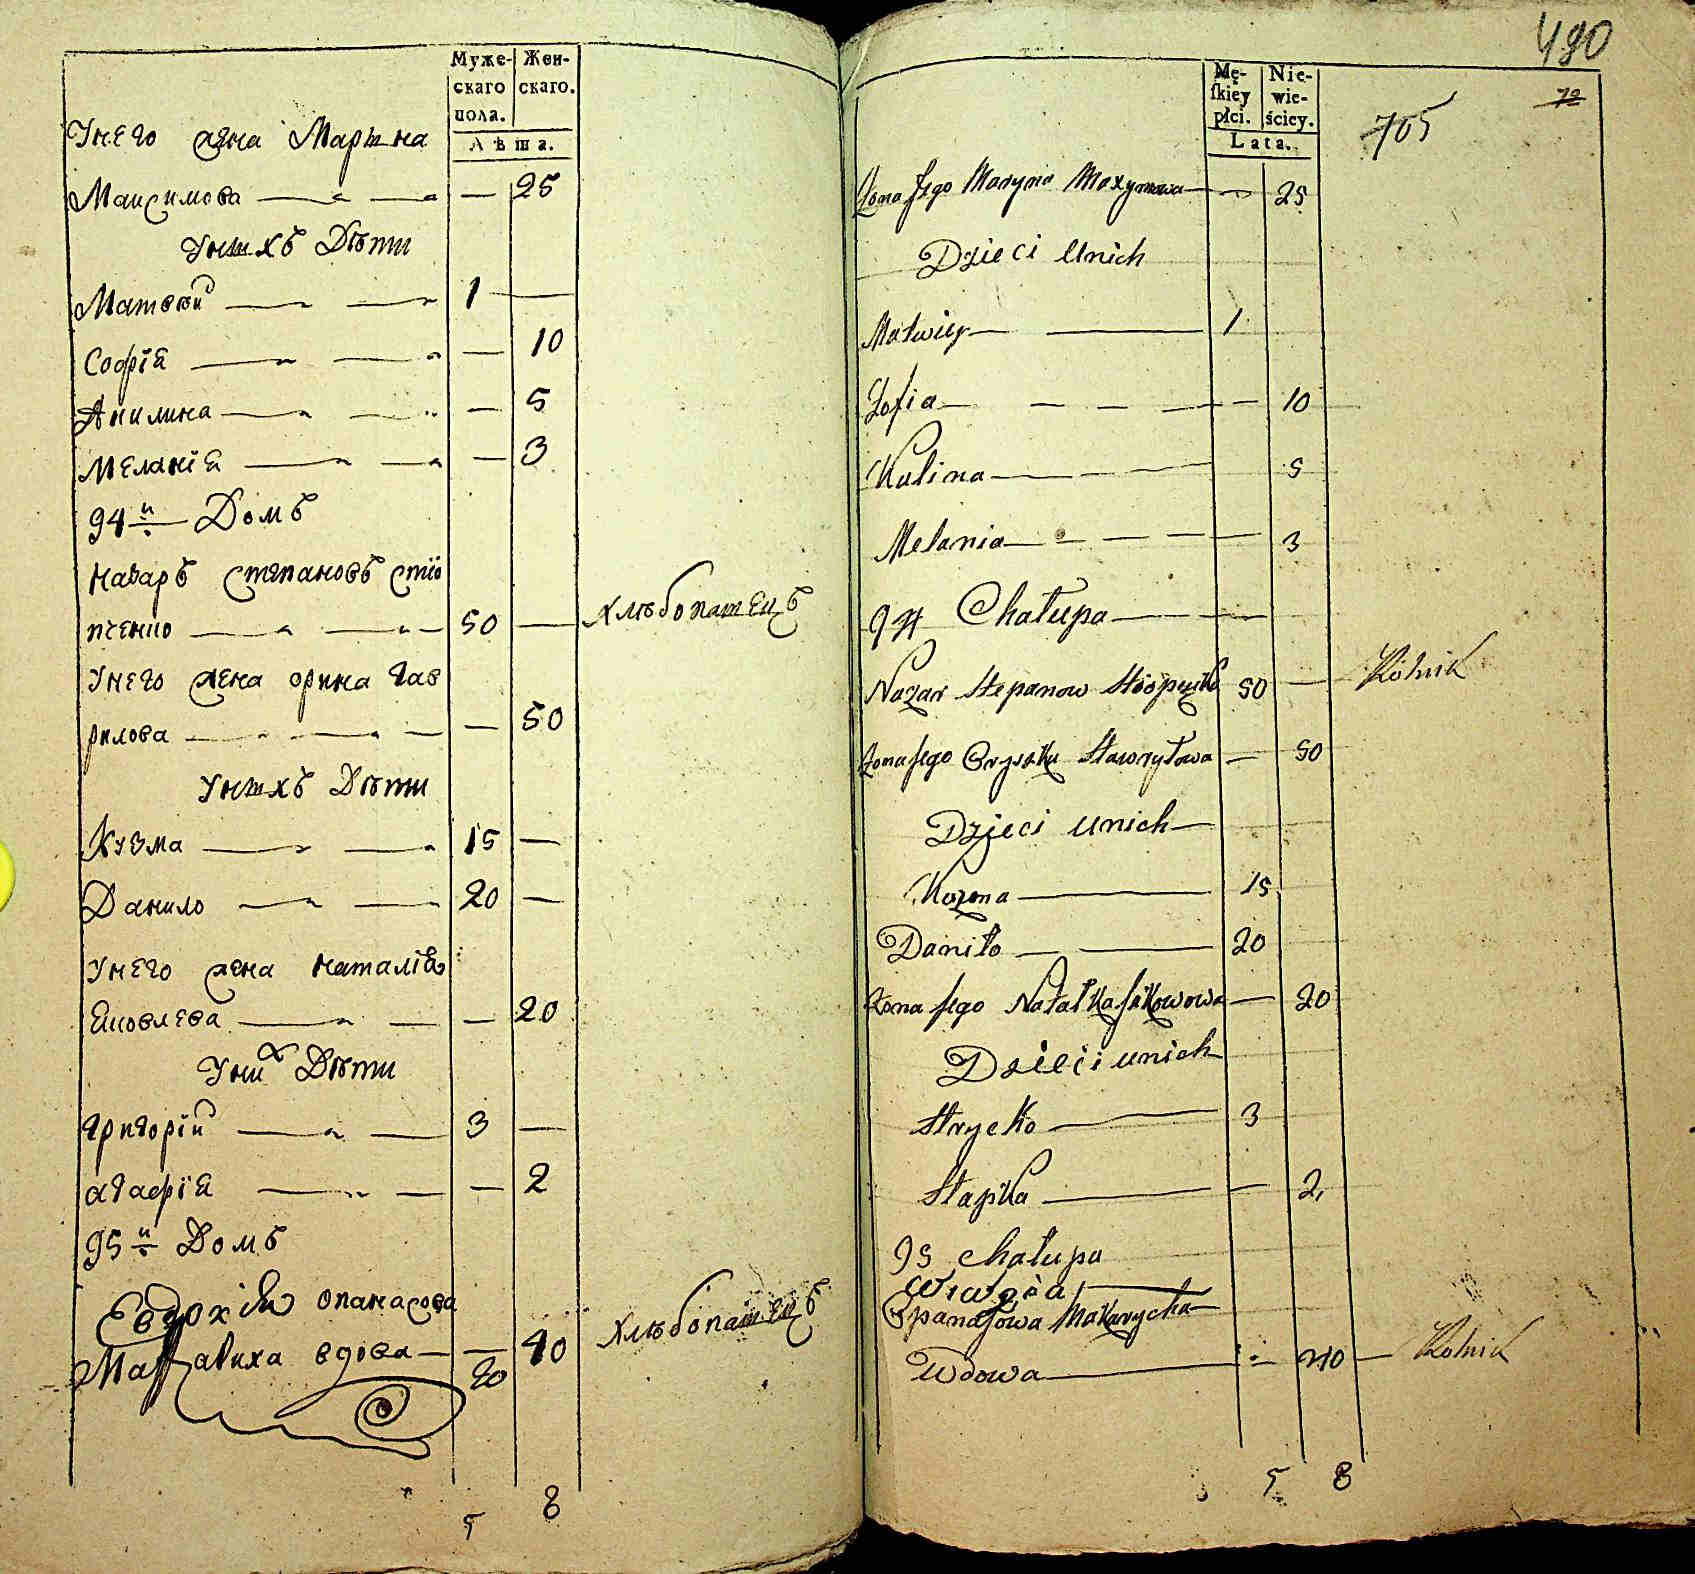 Муже-
скаго
пола.
Жен-
скаго.
Лѣта.
Унего жена Марина
Максимова — 25
Унихъ Дѣти
Матвѣй 1 —
Софїя — 10
Акилина — 5
Меланїя — 3
94й Домъ
Назаръ Степановъ Стїо
пченко 50 — хлѣбопашецъ
Унего жена орина Гав
рилова — 50
Унихъ Дѣти
Кузма 15 —
Данило 20 —
Унего жена Наталїя
Яковлева — 20
Уних Дѣти
Григорїй 3 —
агафїя — 2
95й Домъ
Евдокїя опанасова
вдова — 40 хлѣбопашецъ
20
5 8
490
72
705
Mę-
ſkiey
płci.
Nie-
wie-
ściey.
Lata.
Żona Jego Maryna Maxymowa — 25
Dzieci Unich
Matwiey — 1
Zofia — 10
Kulina — 5
Melania — 3
94 Chałupa —
Nazar Stepanow 50 — Rolnik
Żona Jego Hawryłowa — 50
Dzieci unich —
Kuzma — 15
Daniło — 20
Żona Jego Natałka Jakowowa — 20
Dzieci unich
Hrycko — 3
Hapka — 2
95 Chałupa
Opanasowa Makarycha
Wdowa — 40 — Rolnik
5 8